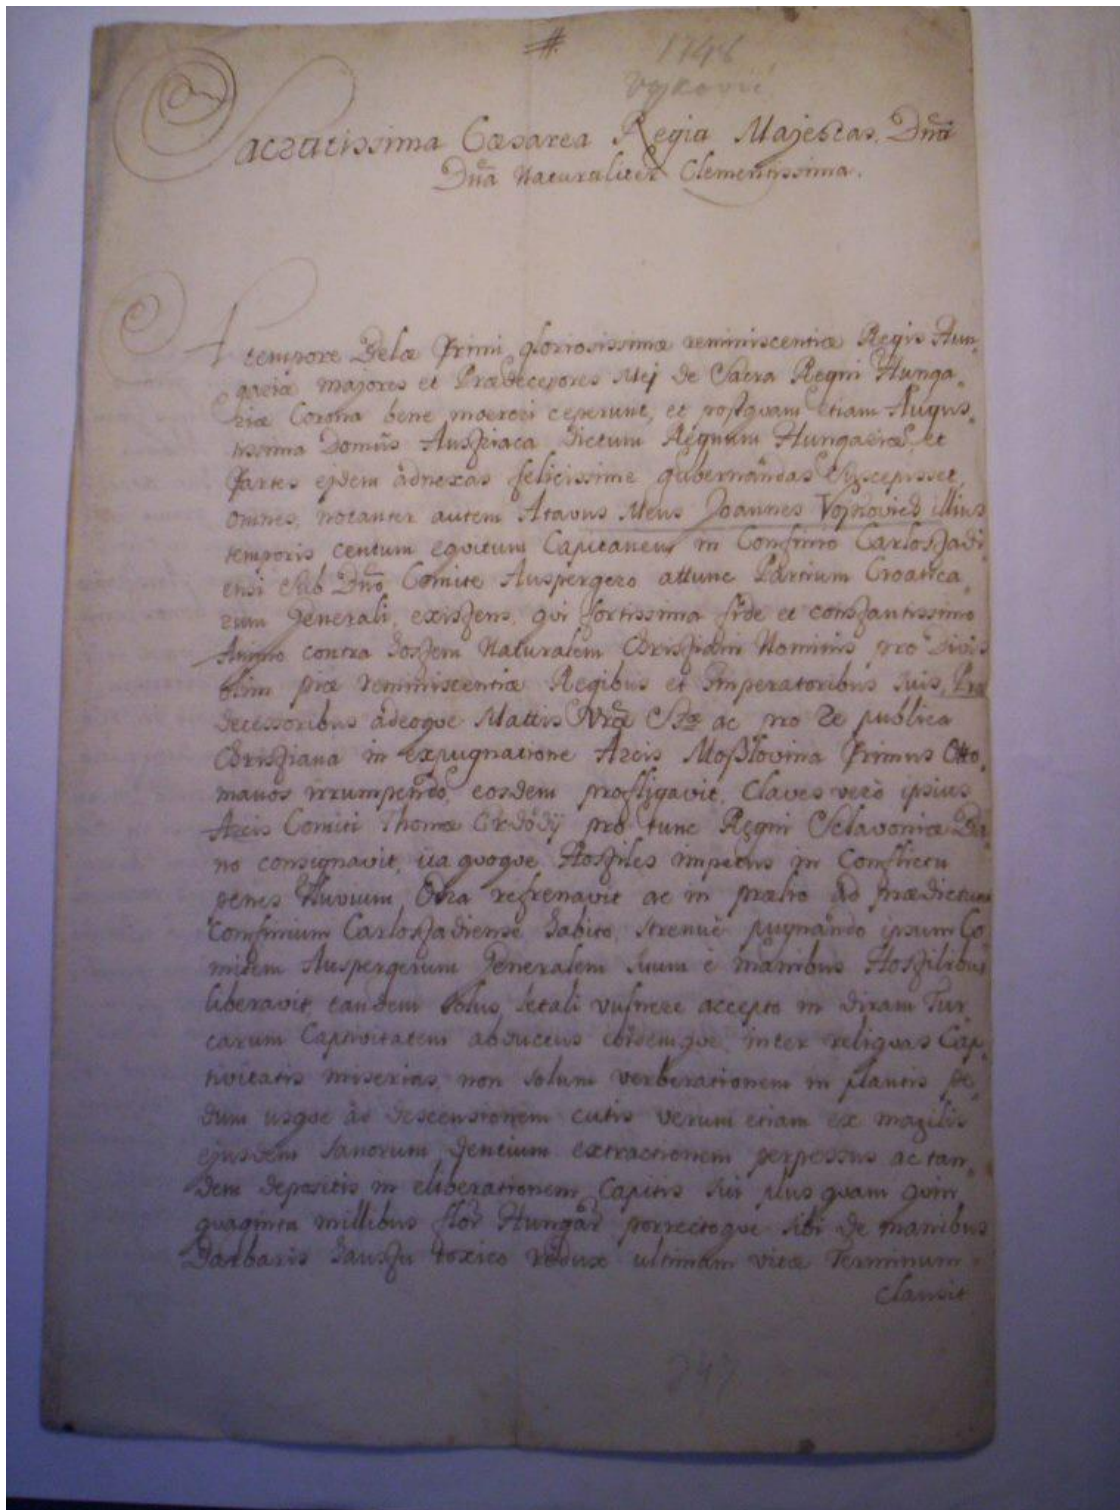 #.
1748
Vojković
Sacratissima Cæsarea Regia Majestas, Dña
Dña Naturaliter Clementissima.
A tempore Belæ Primi gloriosissimæ reminiscentiæ Regis Hun-
gariæ majores et Prædecessores Mej de Sacra Regni Hunga-
riæ Corona bene moereri ceperunt, et postquam etiam Augus-
tissima Domus Austriaca dictum Regnum Hungariæ, et
Partes ejdem adnexas felicissime gubernandas suscepisset,
omnes, notanter autem Atavus Meus Joannes Vojkovich illius
temporis centum equitum Capitaneus in Confinio Carlostadi-
ensi sub Dno Comite Auspergero attunc Partium Croatica-
rum Generali, existens, qui fortissima fide et constantissimo
Animo contra hostem Naturalem Christiani Nominis, pro Divis
olim piæ reminiscentiæ Regibus et Imperatoribus suis, Præ
decessoribus adeoque Mattis Vræ Sræ ac pro Re publica
Christiana in expugnatione Arcis Moszlovina Primus Otto-
manos irrumpendo, eosdem profligavit, Claves verò ipsius
Arcis Comiti Thomæ Erdödÿ pro tunc Regni Sclavoniæ Ba-
no consignavit, ita quoque Hostiles impetus in Conflictu
penes fluvium Odra refrenavit ac in prælio ad prædictum
Confinium Carlostadiense habito, strenuè pugnando ipsum Co-
mitem Auspergerum Generalem suum è manibus Hostilibus
liberavit, tandem solus letali vulnere accepto in diram Tur-
carum Captivitatem abductus ibidemque, inter reliquas Cap-
tivitatis miserias, non solum verberationem in plantis pe-
dum usque ad descensionem cutis verum etiam ex maxillis
ejusdem sanorum dentium extractionem perpessus ac tan-
dem depositis in eliberationem Capitis sui plus quam quin-
quaginta millibus flor Hungar porrectoque sibi de manibus
Barbaris haustu toxico redux ultimam vitæ Terminum
clausit
747